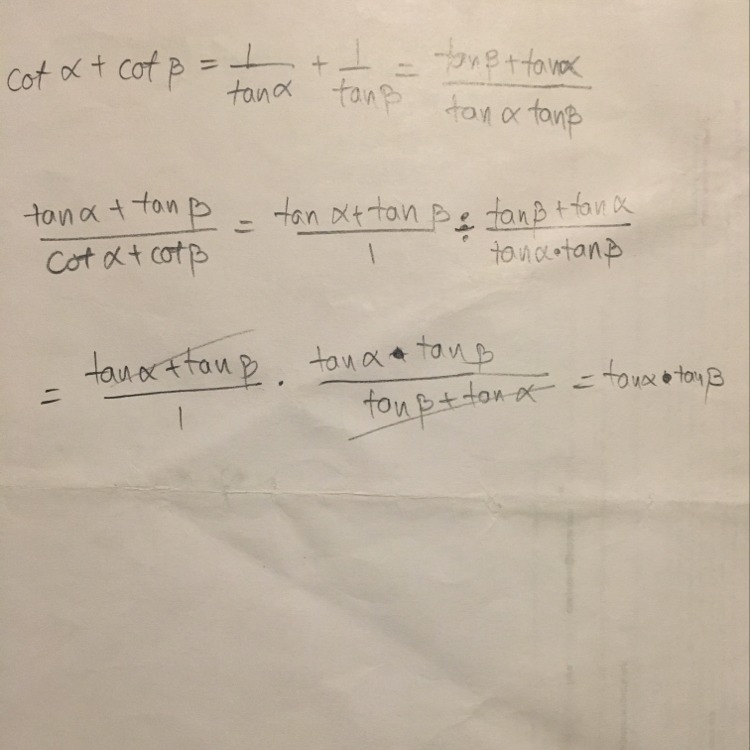 cot α + cot β = 1/tan α + 1/tan β = (tan β + tan α)/(tan α tan β)
(tan α + tan β)/(cot α + cot β) = (tan α + tan β)/1 ÷ (tan β + tan α)/(tan α • tan β)
= (tan α + tan β)/1 · (tan α • tan β)/(tan β + tan α) = tan α • tan β